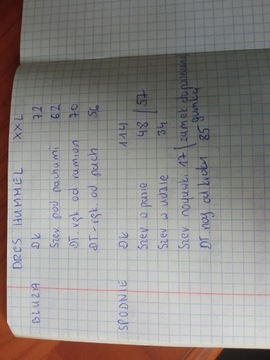 DRES HUMMEL XXL
BLUZA Dł 72
Szer pod pachami 62
Dł ręk od ramion 70
Dł-ręk od pach 56
SPODNIE Dł 114
Szer w pasie 48/57
Szer w udzie 34
Szer nogawki 17 (zamek
Dł nog od kroku 85 gumką